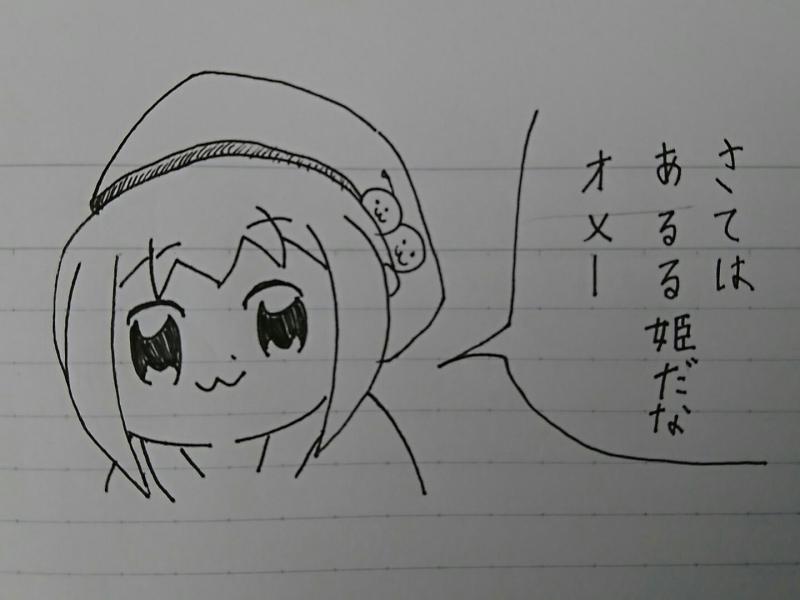 さては
あるる姫だな
オメー